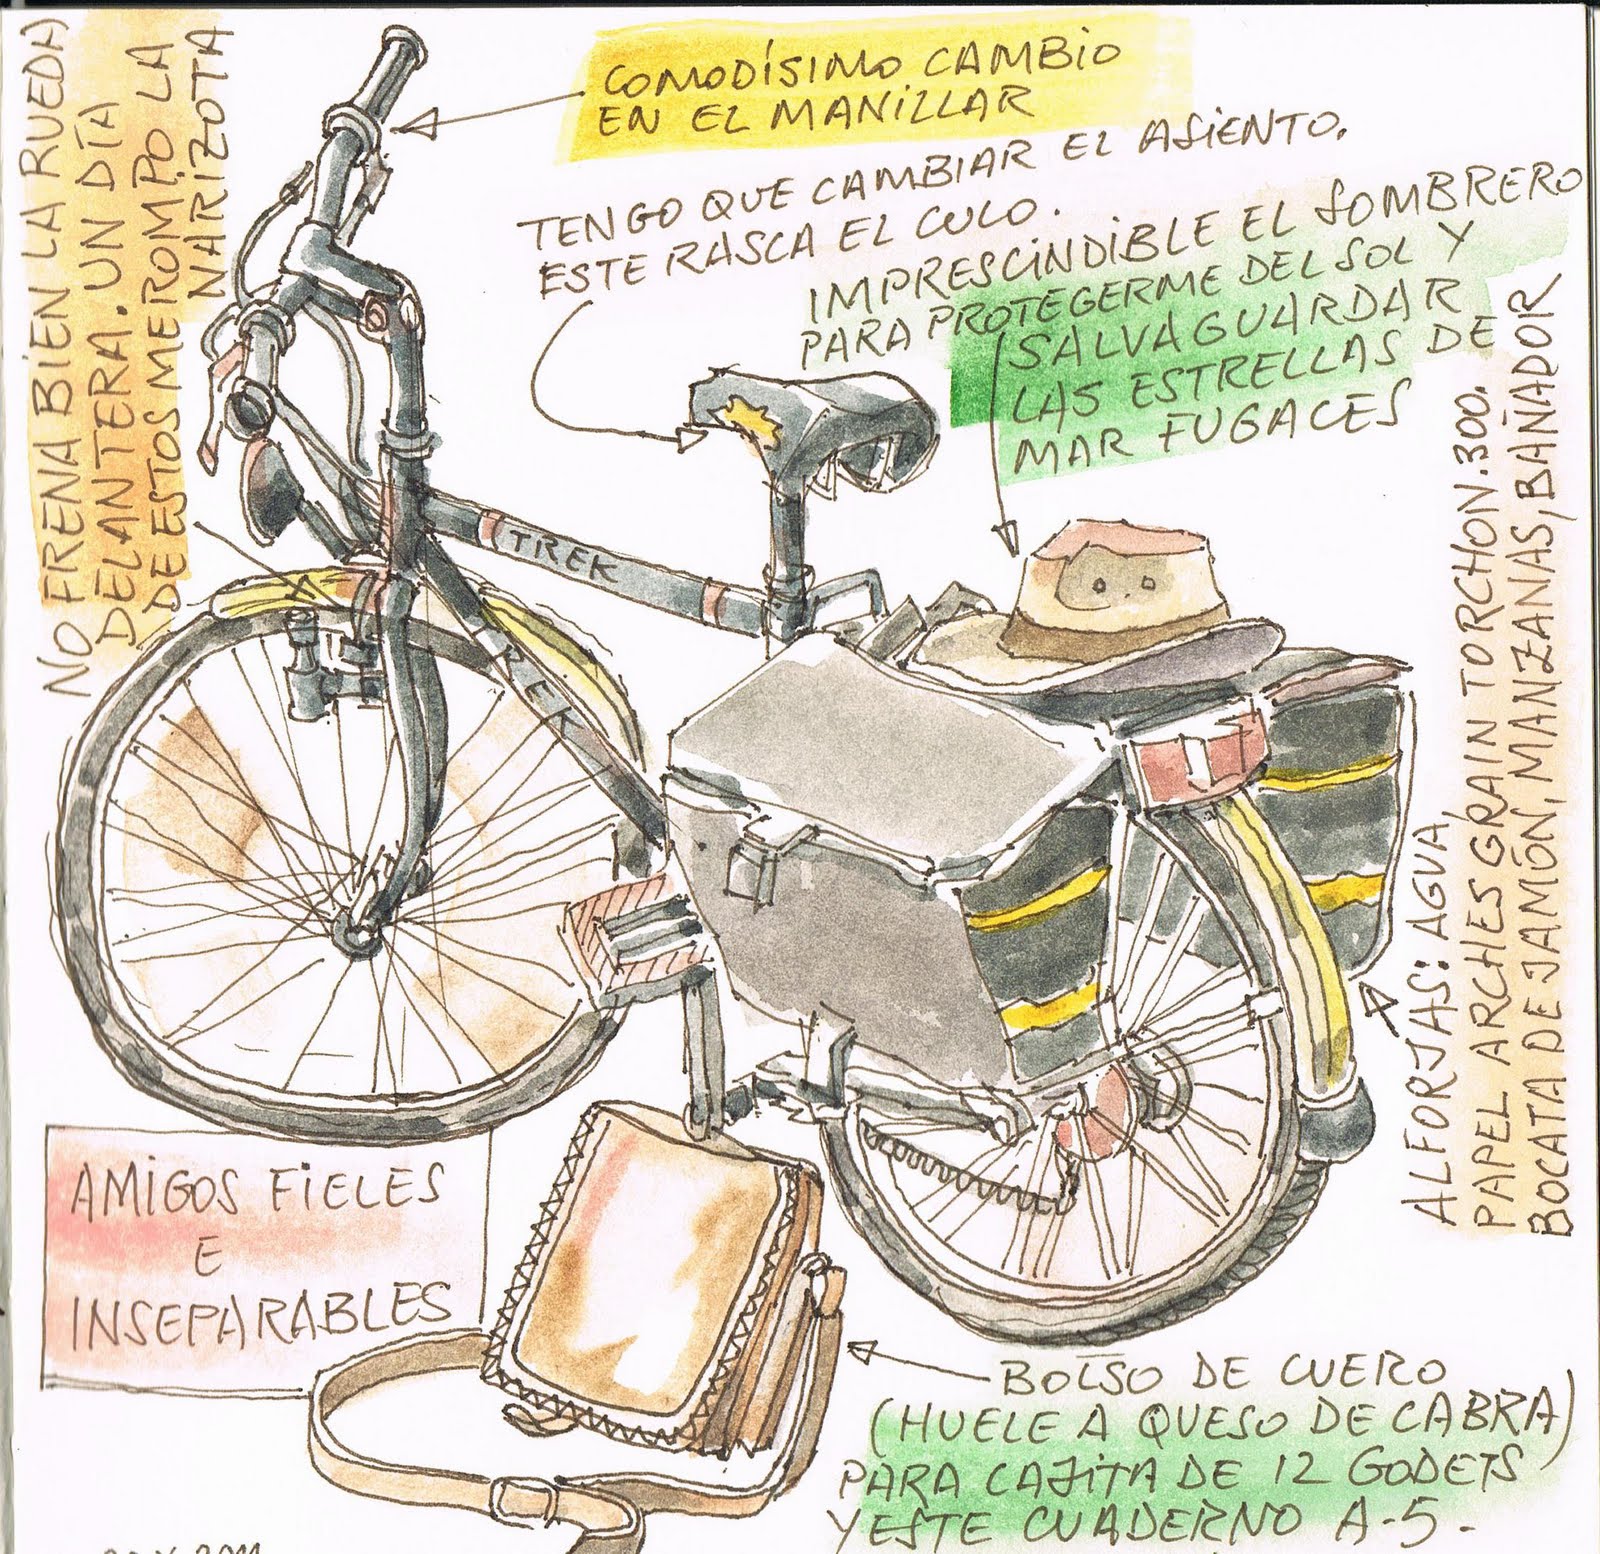 NO FRENA BIEN LA RUEDA
DELANTERA. UN DÍA
DE ESTOS ME ROMPO LA
NARIZOTA
COMODÍSIMO CAMBIO
EN EL MANILLAR
TENGO QUE CAMBIAR EL ASIENTO.
ESTE RASCA EL CULO.
IMPRESCINDIBLE EL SOMBRERO
PARA PROTEGERME DEL SOL Y
SALVAGUARDAR
LAS ESTRELLAS DE
MAR FUGACES
TREK
TREK
ALFORJAS: AGUA,
PAPEL ARCHES GRAIN TORCHON.300.
BOCATA DE JAMÓN, MANZANAS, BAÑADOR
AMIGOS FIELES
E
INSEPARABLES
BOLSO DE CUERO
(HUELE A QUESO DE CABRA)
PARA CAJITA DE 12 GODETS
Y ESTE CUADERNO A-5.